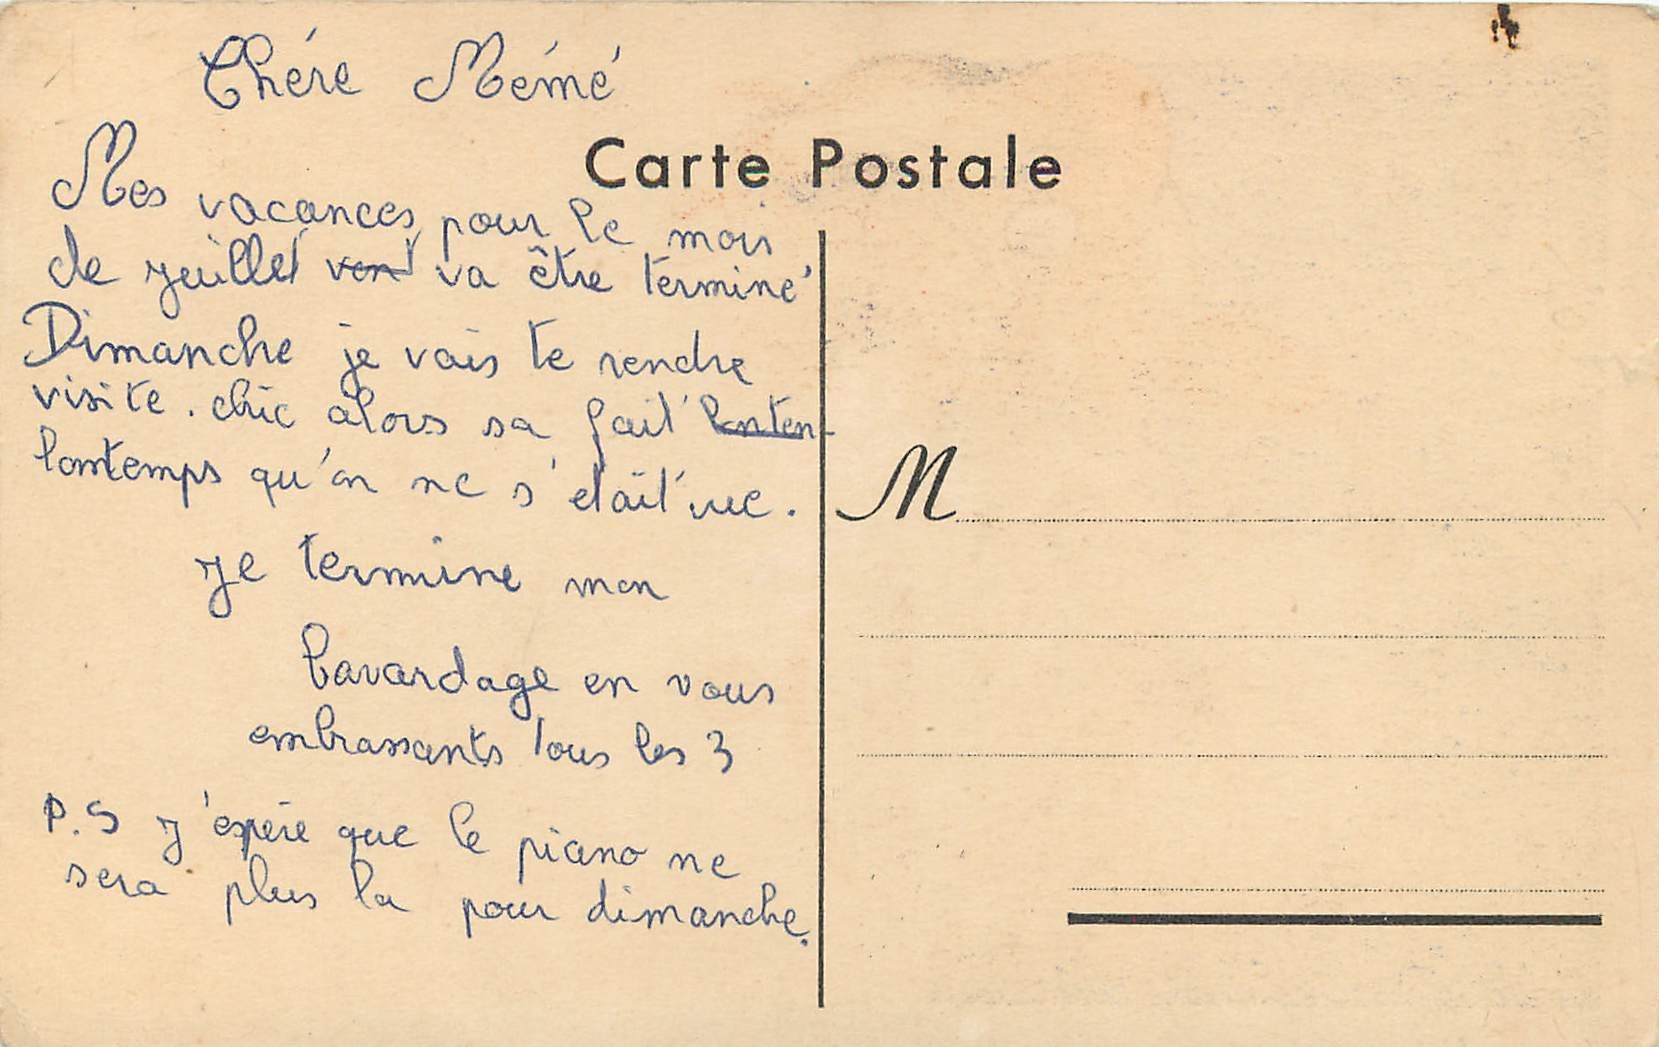 Chére Mémé
Carte Postale
Mes vacances pour le mois
de juillet vont va être terminé
Dimanche je vais te rendre
visite. chic alors sa fait lonten-
lomtemps qu'on ne s'etait vue.
M
Je termine mon
bavardage en vous
embrassants tous les 3
P.S J'espére que le piano ne
sera plus la pour dimanche.